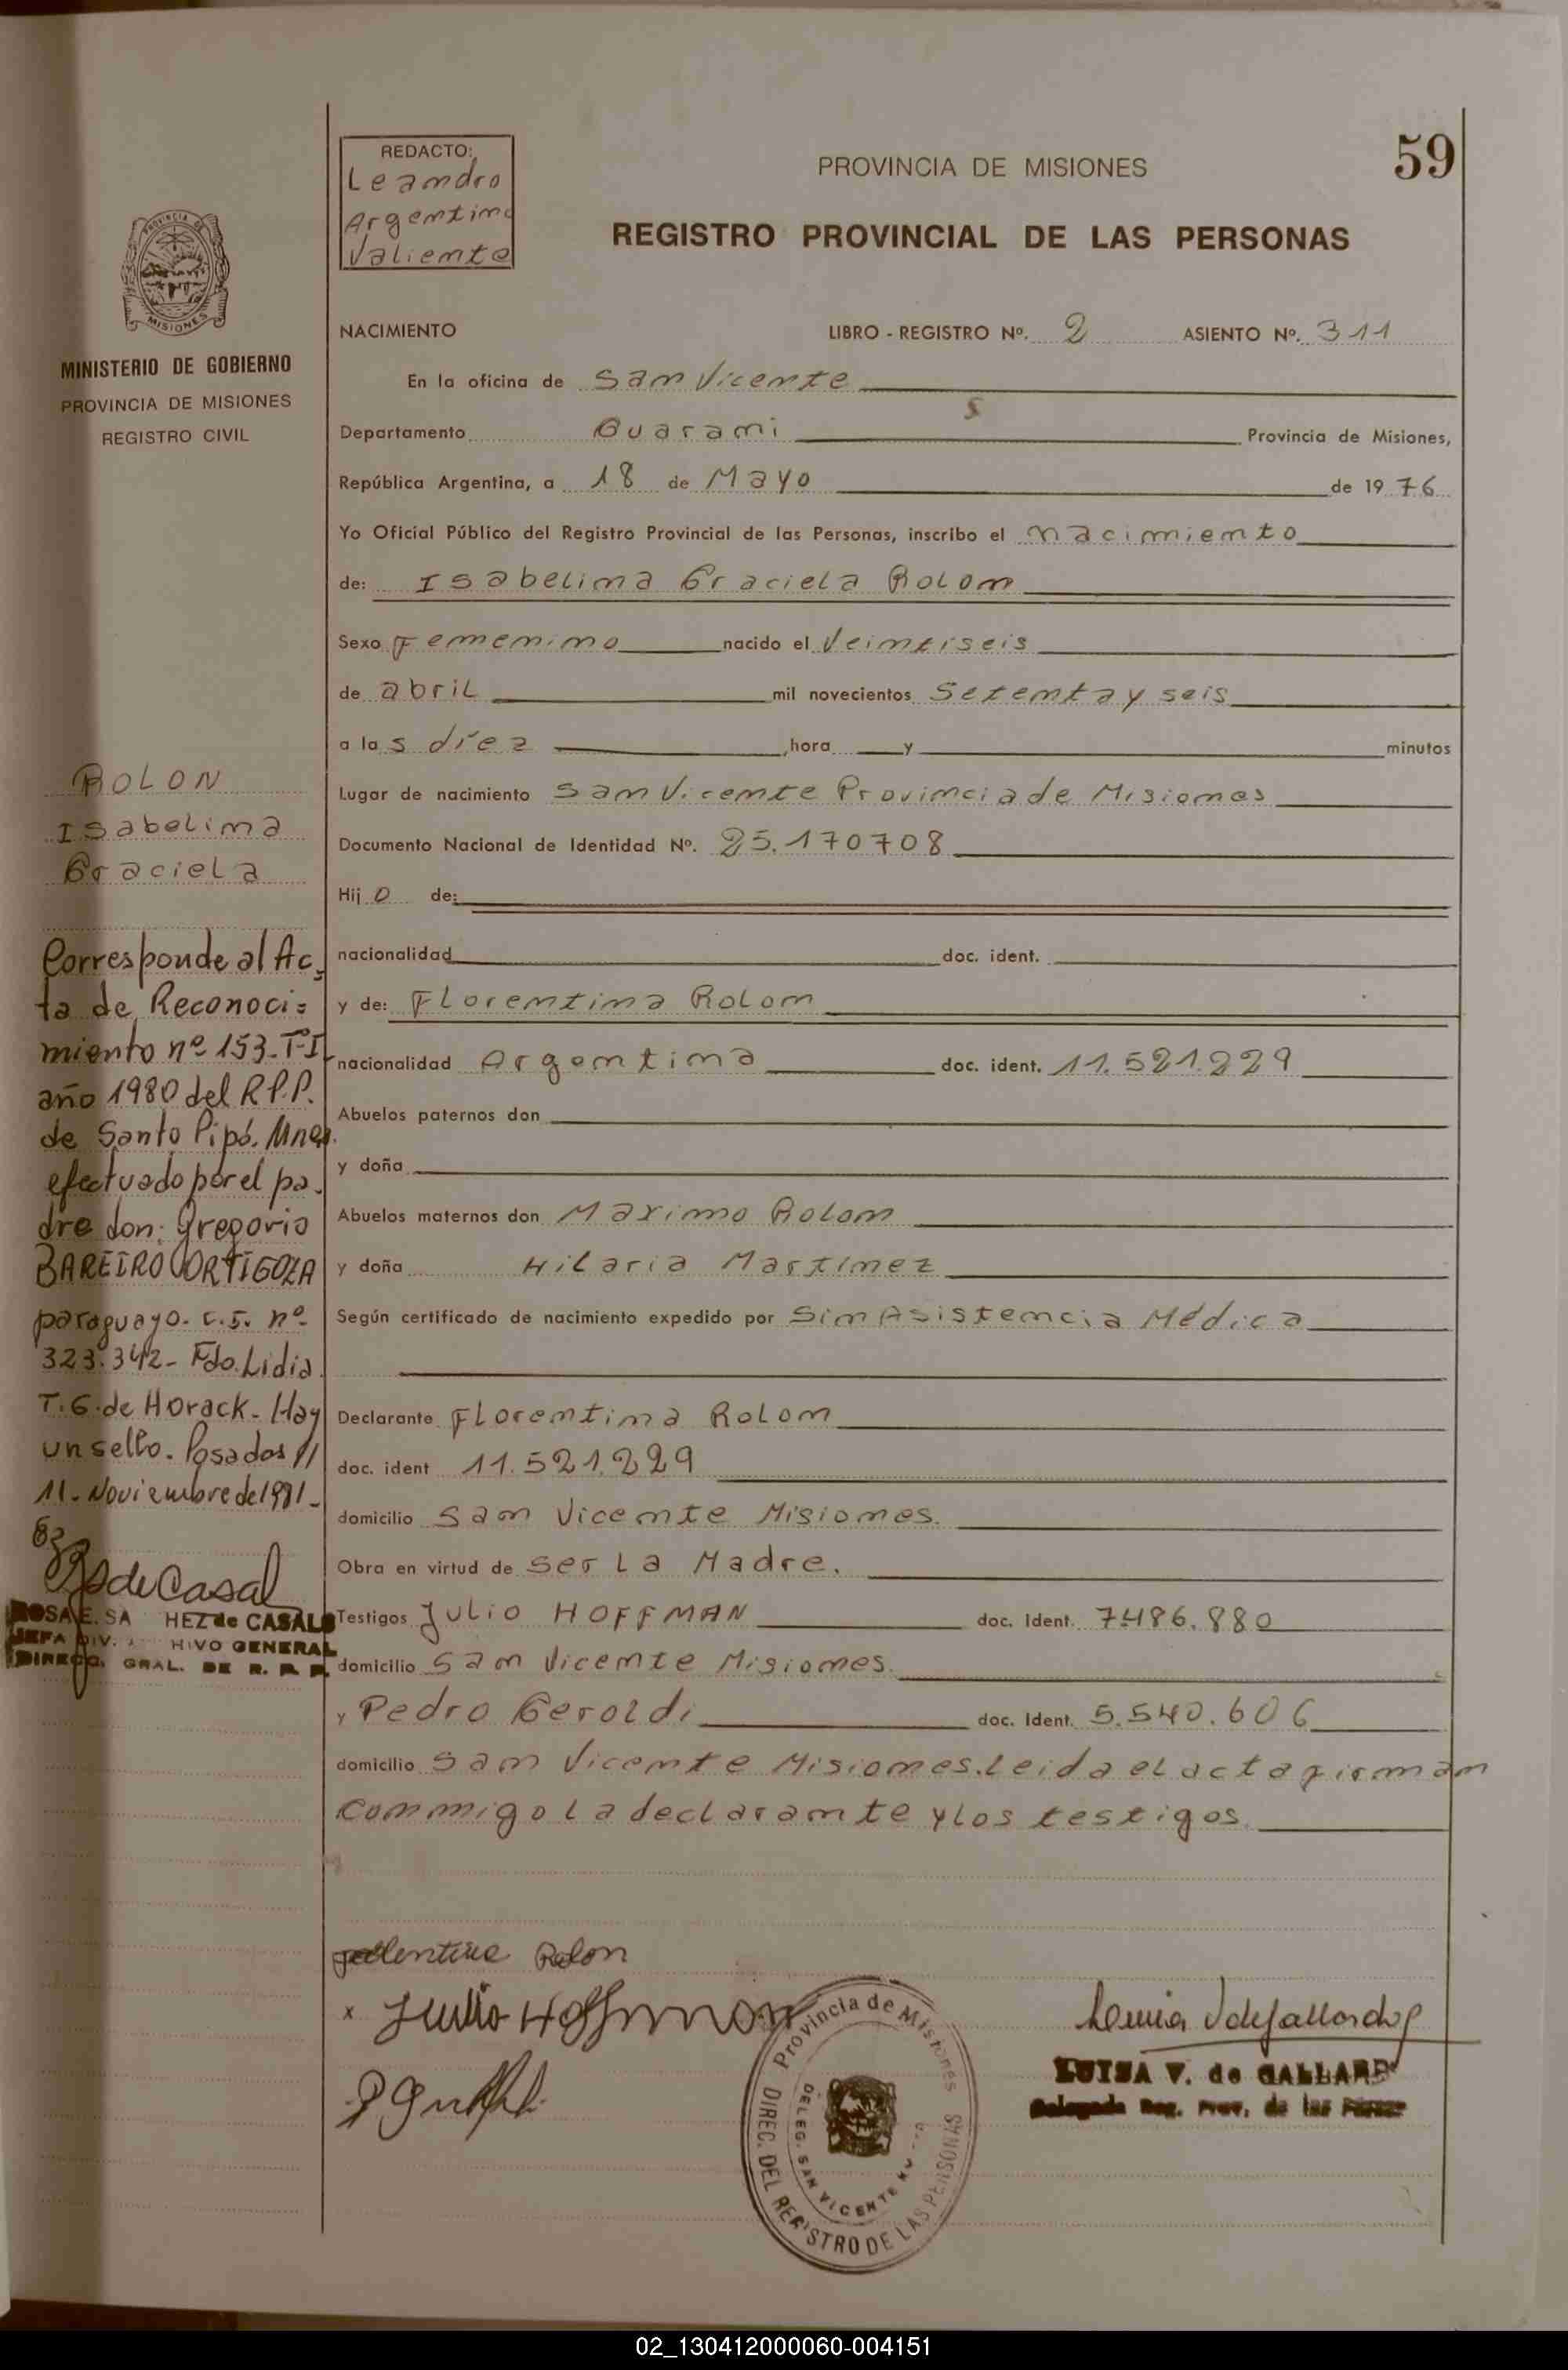 59
REDACTO:
Leandro
Argentino
Valiente
PROVINCIA DE MISIONES
REGISTRO PROVINCIAL DE LAS PERSONAS
PROVINCIA DE
MISIONES
MINISTERIO DE GOBIERNO
PROVINCIA DE MISIONES
REGISTRO CIVIL
NACIMIENTO LIBRO - REGISTRO Nº. 2 ASIENTO Nº. 311
En la oficina de San Vicente
Departamento Guarani Provincia de Misiones,
República Argentina, a 18 de Mayo de 1976
Yo Oficial Público del Registro Provincial de las Personas, inscribo el nacimiento
de: Isabelina Graciela Rolon
Sexo Femenino nacido el Veintiseis
de abril mil novecientos Setenta y seis
a las diez hora y minutos
Lugar de nacimiento San Vicente Provincia de Misiones
Documento Nacional de Identidad Nº. 25.170708
Hijo de:
nacionalidad doc. ident.
y de: Florentina Rolon
nacionalidad Argentina doc. ident. 11.521.229
Abuelos paternos don
y doña
Abuelos maternos don Maximo Rolon
y doña Hilaria Martinez
Según certificado de nacimiento expedido por Sin Asistencia Médica
Declarante Florentina Rolon
doc. ident 11.521.229
domicilio San Vicente Misiones.
Obra en virtud de ser La Madre.
Testigos Julio HOFFMAN doc. Ident. 7.486.880
domicilio San Vicente Misiones.
y Pedro Geroldi doc. Ident. 5.540.606
domicilio San Vicente Misiones. Leida el acta firman
conmigo la declarante y los testigos.
ROLON
Isabelina
Graciela
Corresponde al Ac-
ta de Reconoci=
miento nº 153-Tº-I
año 1980 del R.P.P.
de Santo Pipó. Mnes.
efectuado por el pa-
dre don: Gregorio
BAREIRO ORTIGOZA
paraguayo. C.I. nº
323.342- Fdo. Lidia
T.G. de Horack- Hay
un sello. Posadas
11- Noviembre de 1981-
de Casal
ROSA E. SA HEZ de CASALS
JEFA DIV. HIVO GENERAL
DIRECC. GRAL. DE R. P. P.
Rolon
x Julio Hoffman
Provincia de Misiones
DIREC. DEL REGISTRO DE LAS PERSONAS
DELEG. SAN VICENTE
LUISA V. de GALLARD
Delegada Reg. Prov. de las
02_130412000060-004151